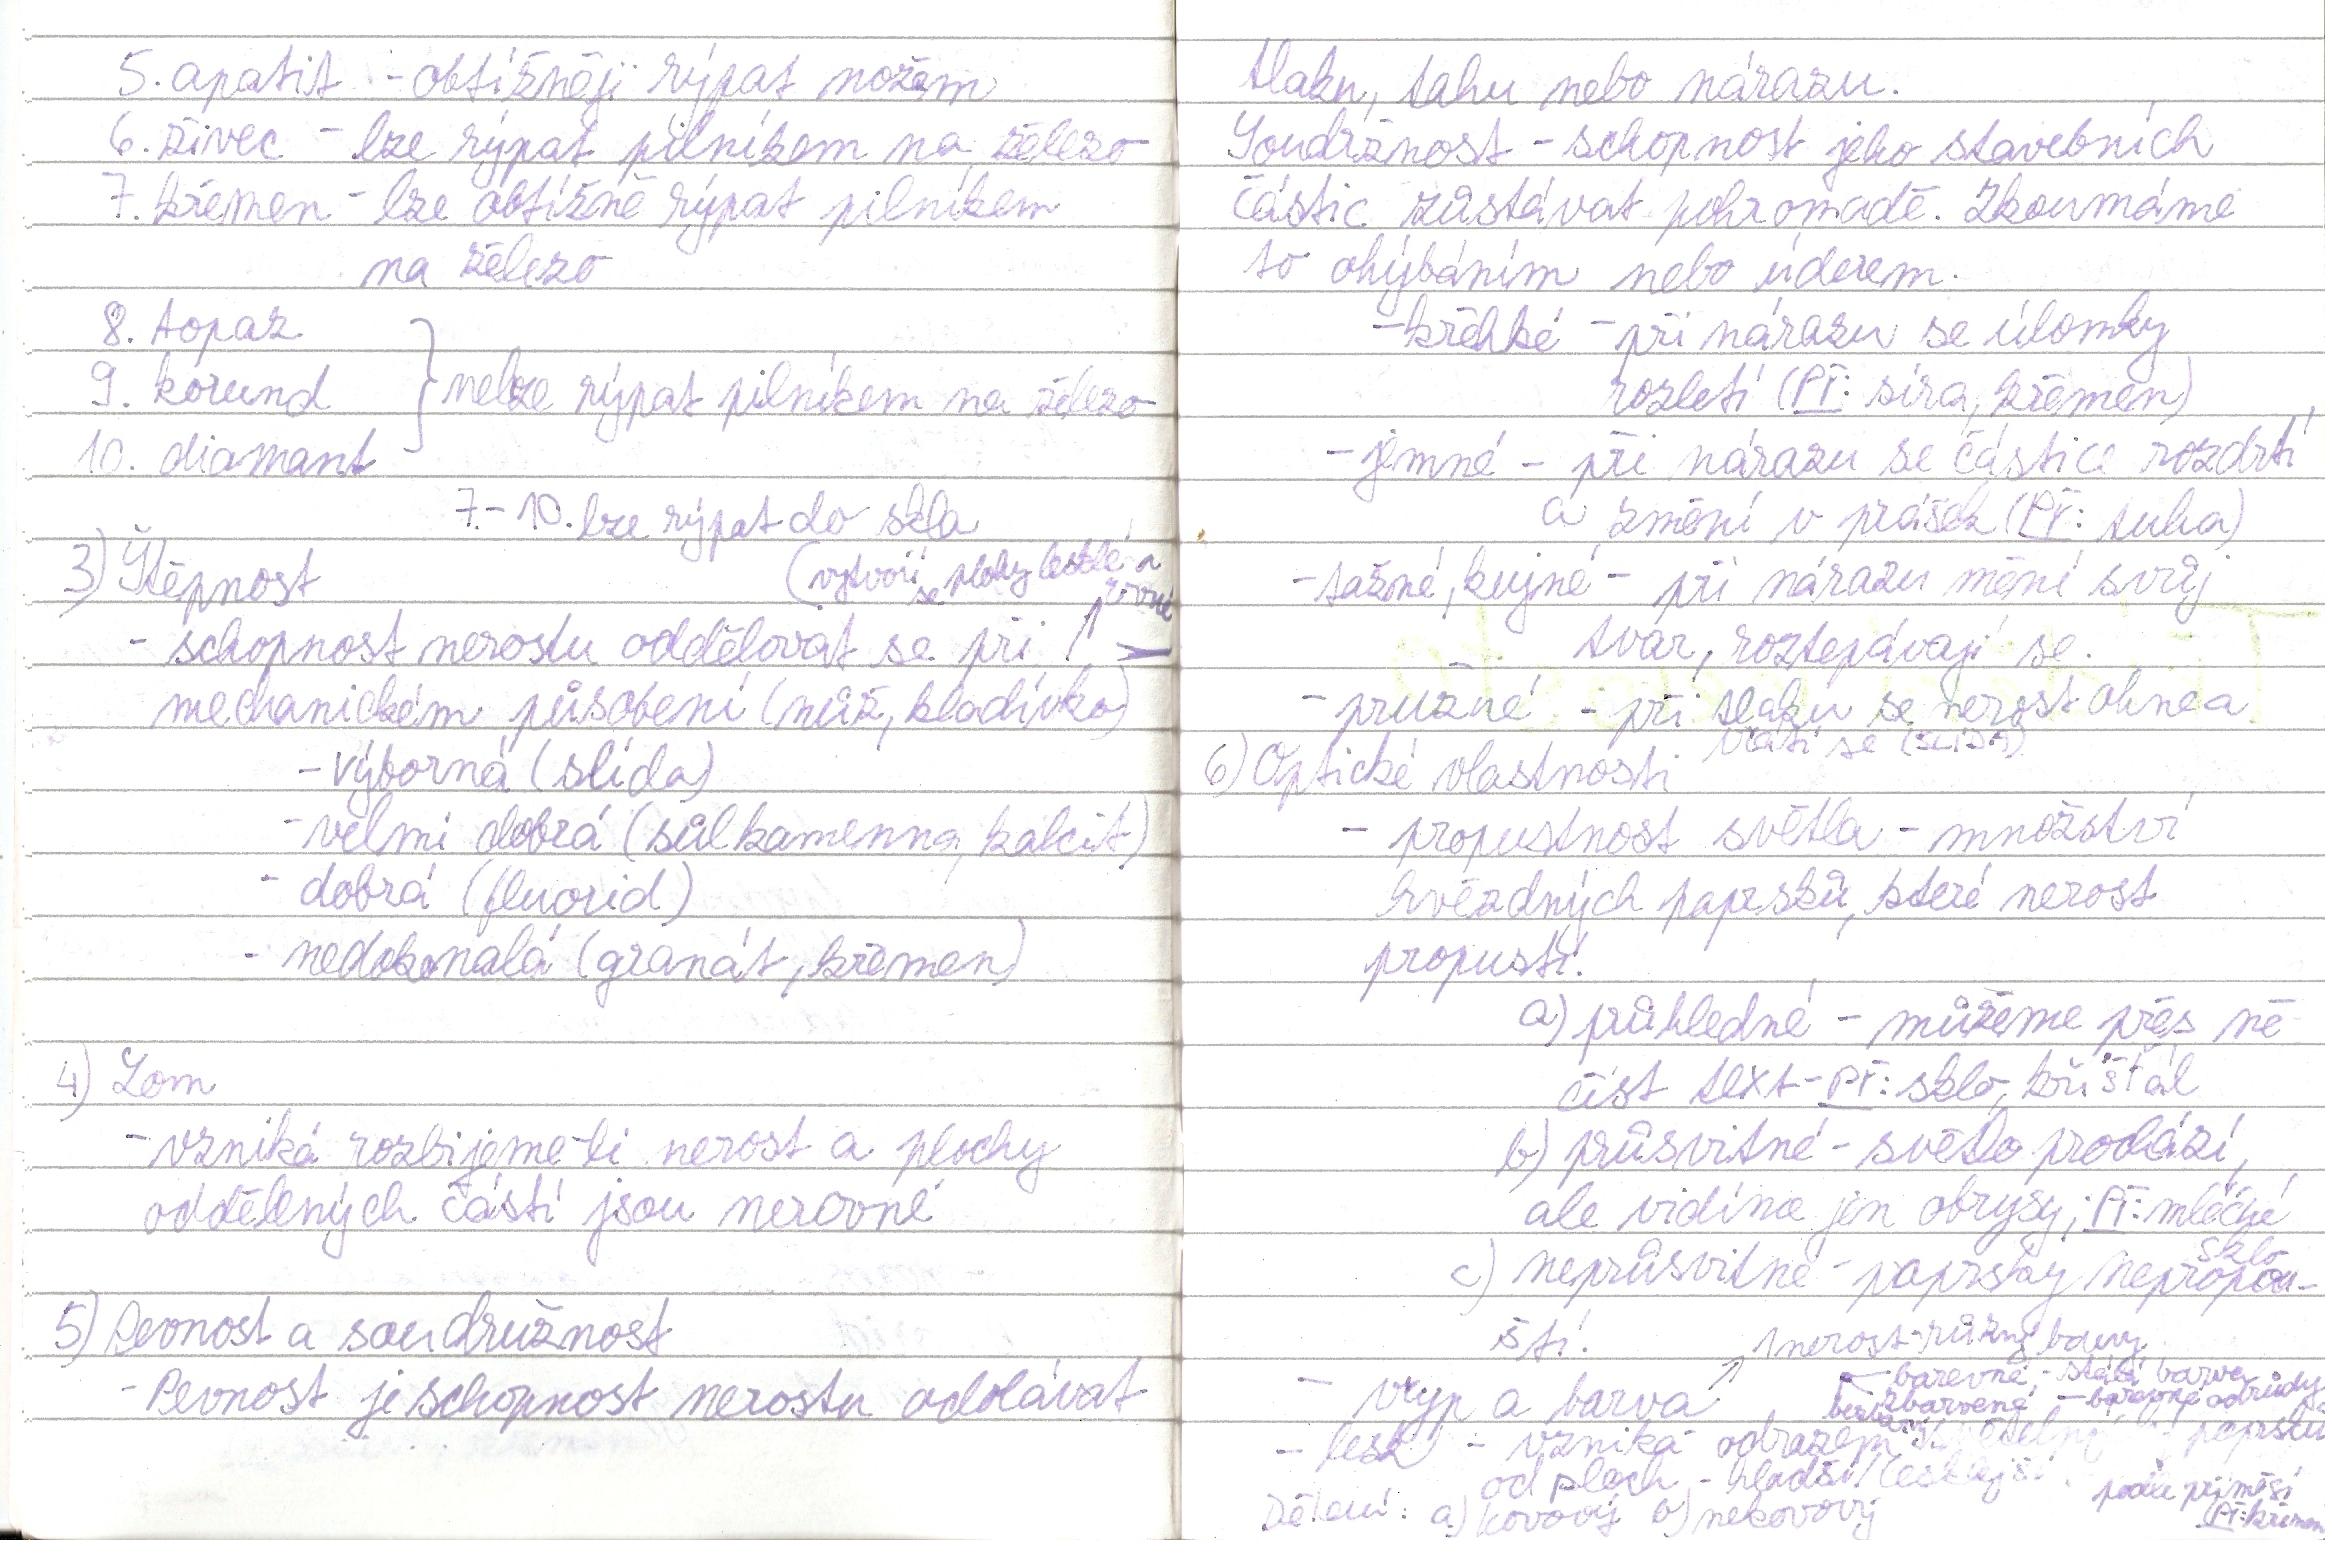 5. apatit - obtížněji rýpat nožem
6. živec - lze rýpat pilníkem na železo
7. křemen - lze obtížně rýpat pilníkem
na železo
8. topaz
9. korund
nelze rýpat pilníkem na železo
10. diamant
7.-10. lze rýpat do skla
3) Štěpnost
(vytvoří se plochy lesklé a
rovné
- schopnost nerostu oddělovat se při
mechanickém působení (nůž, kladívko)
- výborná (slída)
- velmi dobrá (sůl kamenna, kalcit)
- dobrá (fluorid)
- nedokonalá (granát, křemen)
4) Lom
- vzniká rozbijeme-li nerost a plochy
oddělených částí jsou nerovné
5) Pevnost a soudružnost
- Pevnost je schopnost nerostu odolávat
tlaku, tahu nebo nárazu.
Soudržnost - schopnost jeho stavebních
částic zůstávat pohromadě. Zkoumáme
to ohýbáním nebo úderem.
- křehké - při nárazu se úlomky
rozletí (PŘ: síra, křemen)
- jemné - při nárazu se částice rozdrtí
a změní v prášek (PŘ: tuha)
- tažné, kujné - při nárazu mění svůj
tvar, roztepávají se.
- pružné - při tlaku se nerost ohne a
vrátí se (SLÍDA)
6) Optické vlastnosti
- propustnost světla - množství
hvězdných paprsků, které nerost
propustí.
a) průhledné - můžeme přes ně
číst text - PŘ: sklo, křišťál
b) průsvitné - světlo prochází,
ale vidíme jen obrysy; PŘ: mléčné
sklo
c) neprůsvitné - paprsky nepropou-
ští.
1 nerost - různý barvy
- barevné - stálá barva
- vryp a barva
zbarvené - barevné odrůdy
- lesk - vzniká odrazem paprsku
od ploch - hladší lesklejší.
podle příměsí
Dělení: a) kovový b) nekovový
PŘ: křemen